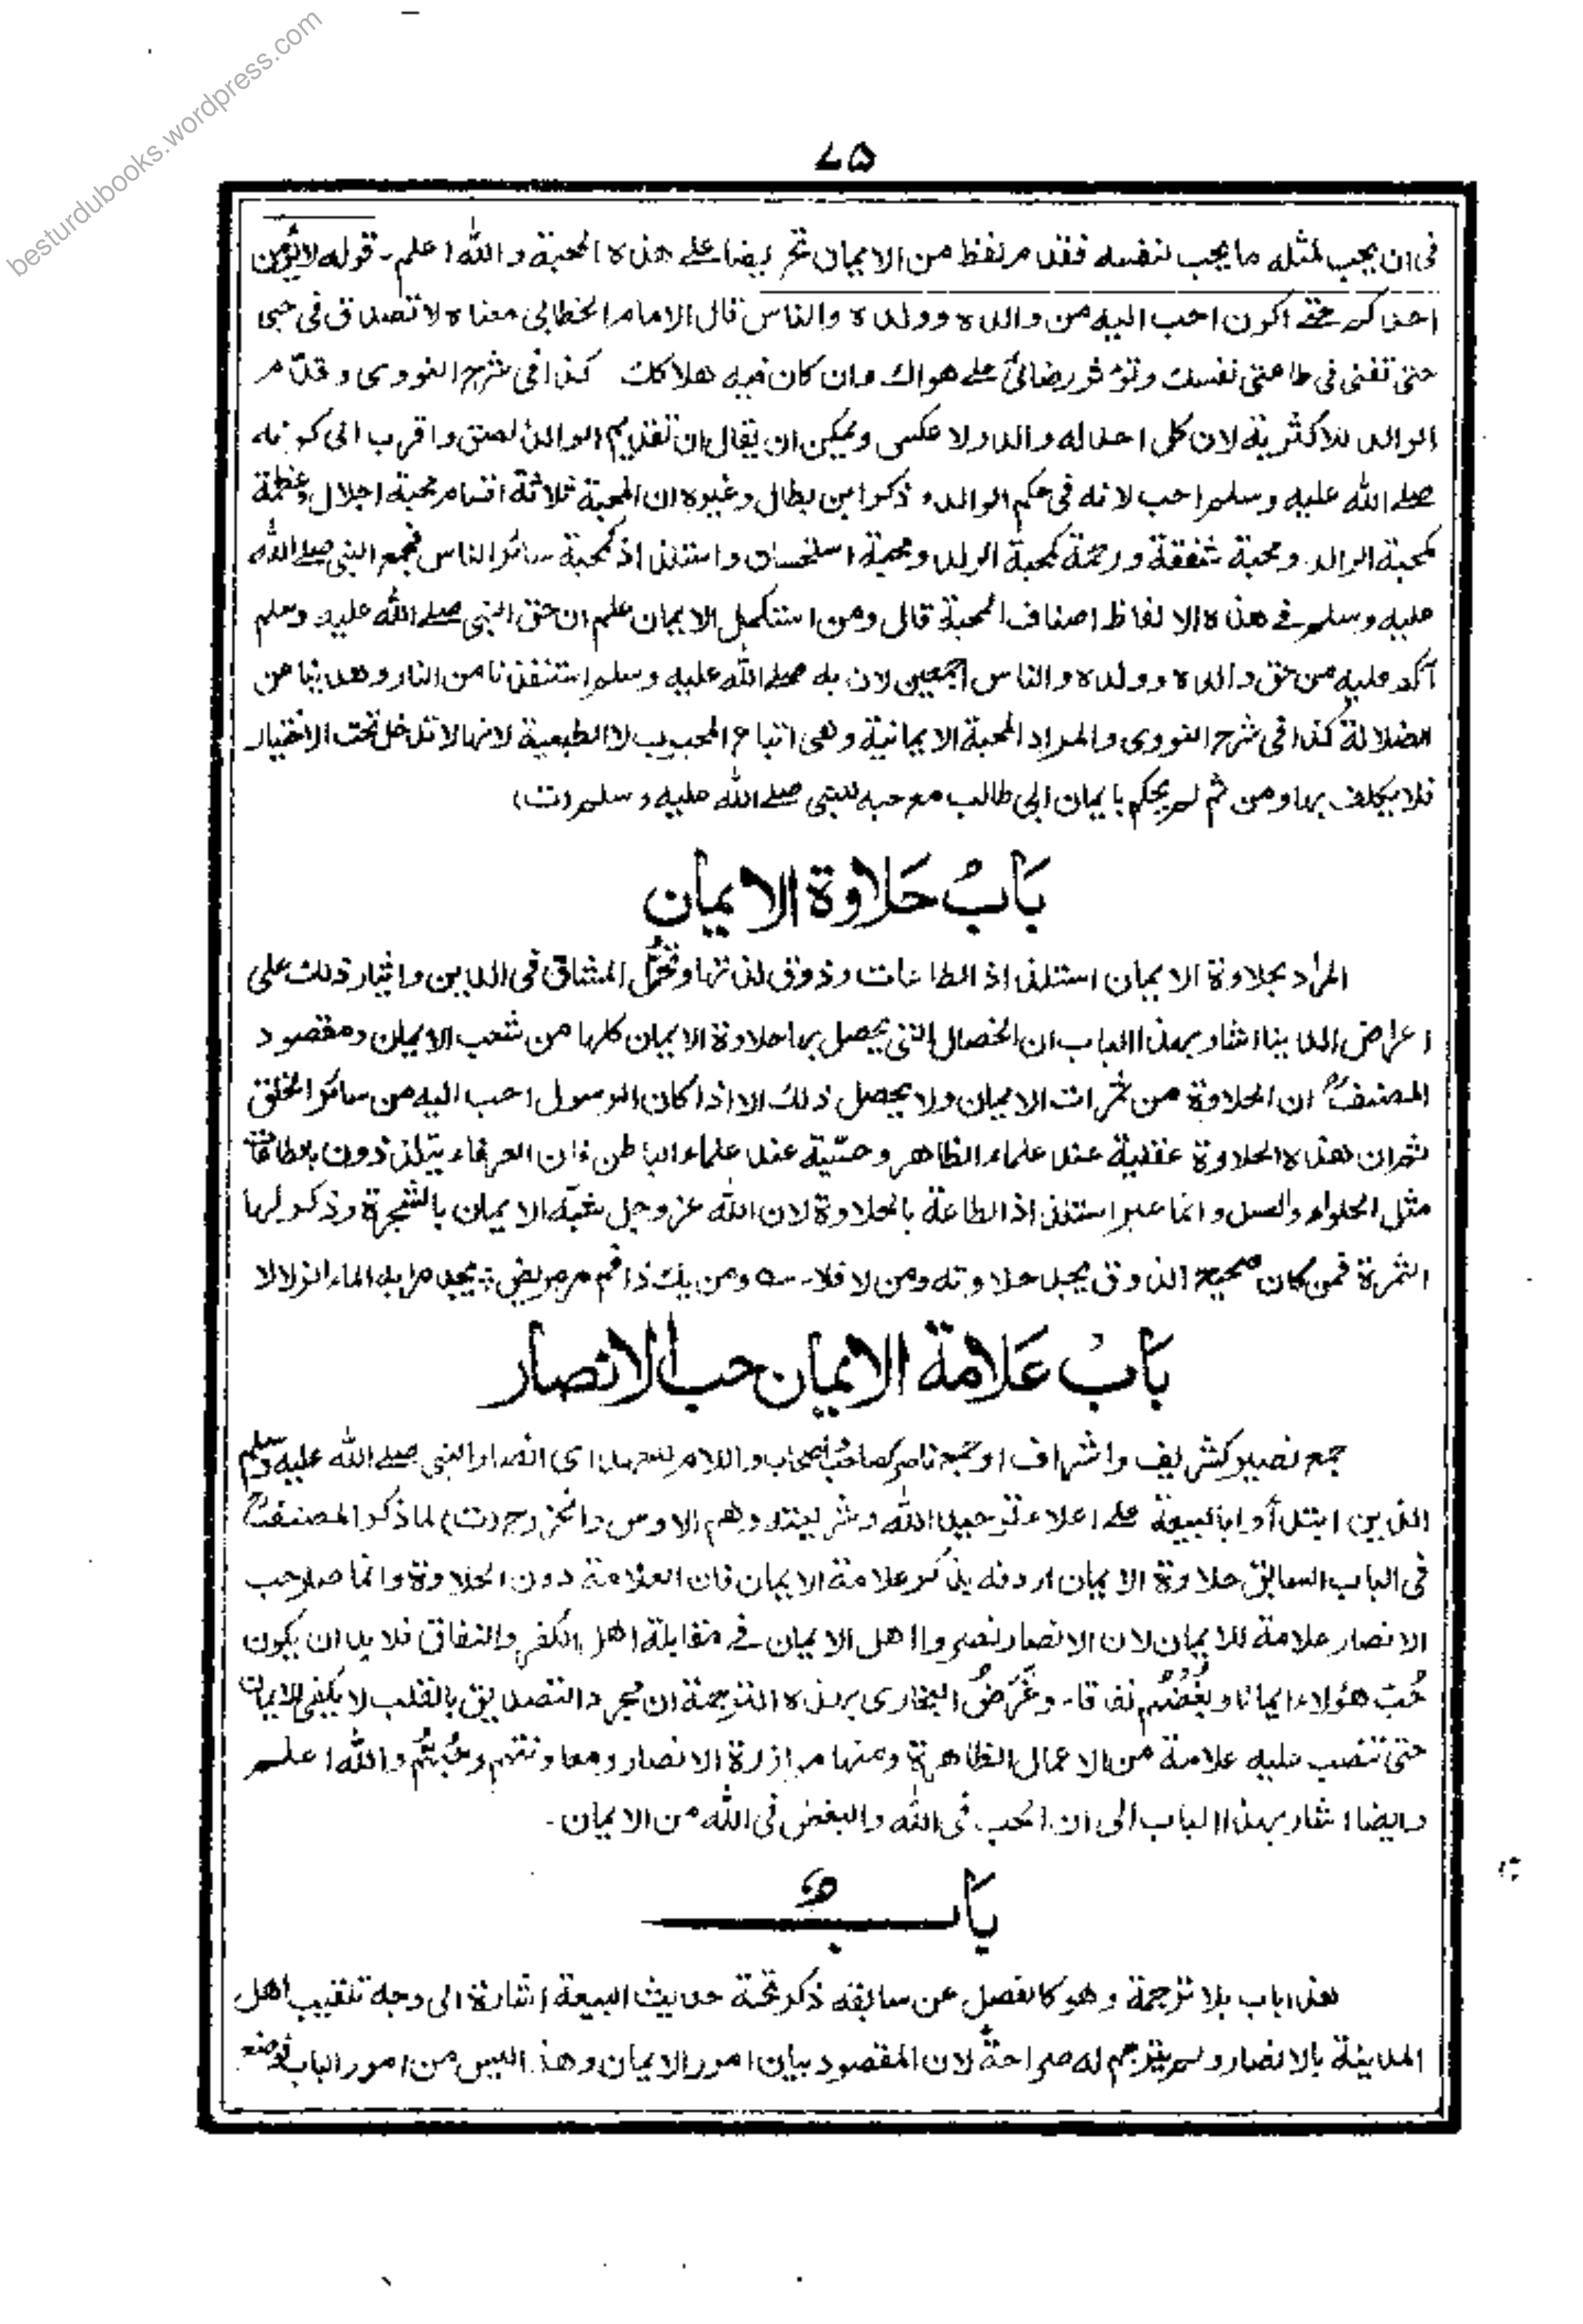 besturdubooks.wordpress.com
۷۵
فى ان يحب لمثله ما يحب لنفسه فقدم لفظ من الايمان تحريضا على هذه المحبة والله اعلم۔ قوله لا يؤمن
احدكم حتى اكون احب اليه من والده وولده والناس قال الامام الخطابى معناه لا تصدق فى حبى
حتى تفنى فى طاعتى نفسك وتؤثر رضائى على هواك وان كان فيه هلاكك كذا فى شرح النووى وقدم
الوالد للاكثرية لان كل احد له والد ولا عكس ويمكن ان يقال ان تقديم الوالد لصق واقرب الى كونه
صلى الله عليه وسلم احب لانه فى حكم الوالد وذكر ابن بطال وغيره ان المحبة ثلاثة اقسام محبة اجلال وعظمة
كمحبة الوالد ومحبة شفقة ورحمة كمحبة الولد ومحبة استحسان واستلذاذ كمحبة سائر الناس فجمع النبى صلى الله
عليه وسلم فى هذه الالفاظ اصناف المحبة قال ومن استكمل الايمان علم ان حق النبى صلى الله عليه وسلم
آكد عليه من حق والده وولده والناس اجمعين لان به صلى الله عليه وسلم استنقذنا من النار وهدينا من
الضلالة كذا فى شرح النووى والمراد المحبة الايمانية وهى اتباع المحبوب لا الطبعية لانها لا تدخل تحت الاختيار
فلا يكلف بها ومن ثم لم يحكم بايمان ابى طالب مع حبه للنبى صلى الله عليه وسلم (ت)
بَابُ حَلاوة الايمان
المراد بحلاوة الايمان استلذاذ الطاعات وذوق لذتها وتحمّل المشاق فى الدين وايثار ذلك على
اعراض الدنيا اشار بهذا الباب ان الخصال التى يحصل بها حلاوة الايمان كلها من شعب الايمان ومقصود
المصنفؒ ان الحلاوة من ثمرات الايمان ولا يحصل ذلك الا اذا كان الرسول احب اليه من سائر الخلق
ثم ان هذه الحلاوة عقلية عند علماء الظاهر وحسّية عند علماء الباطن فان العرفاء يتلذذون بالطاعة
مثل الحلواء والعسل وانما عبر استلذاذ الطاعة بالحلاوة لان الله عز وجل شبّه الايمان بالشجرة وذكر لها
الثمرة فمن كان صحيح الذوق يجد حلاوته ومن لا فلا۔ ؎ ومن يك ذا فم مر مريض ؛ يجد مرا به الماء الزلالا
بَابُ عَلامة الايمان حب الانصار
جمع نصير كشريف واشراف او جمع ناصر كصاحب اصحاب واللام للعهد اى انصار النبى صلى الله عليه وسلم
الذين ابتدأوا بالبيعة على اعلاء توحيد الله وشريعته وهم الاوس والخزرج (ت) لما ذكر المصنفؒ
فى الباب السابق حلاوة الايمان اردفه بذكر علامة الايمان فان العلامة دون الحلاوة وانما صار حب
الانصار علامة للايمان لان الانصار نصروا اهل الايمان فى مقابلة اهل الكفر والنفاق فلا بد ان يكون
حُبّ هؤلاء ايمانا وبُغْضُهم نفاقا۔ وغَرَضُ البخارى بهذه الترجمة ان مجرد التصديق بالقلب لا يكفى للايمان
حتى تنصب عليه علامة من الاعمال الظاهرة ومنها موازرة الانصار ومعاونتهم ومحبّتهم والله اعلم
وايضا اشار بهذا الباب الى ان الحب فى الله والبغض فى الله من الايمان۔
بَابٌ
هذا باب بلا ترجمة وهو كالفصل عن سابقه ذكر تحته حديث البيعة اشارة الى وجه تلقيب اهل
المدينة بالانصار ولم يترجم له صراحة لان المقصود بيان امور الايمان وهذا ليس من امور الباب